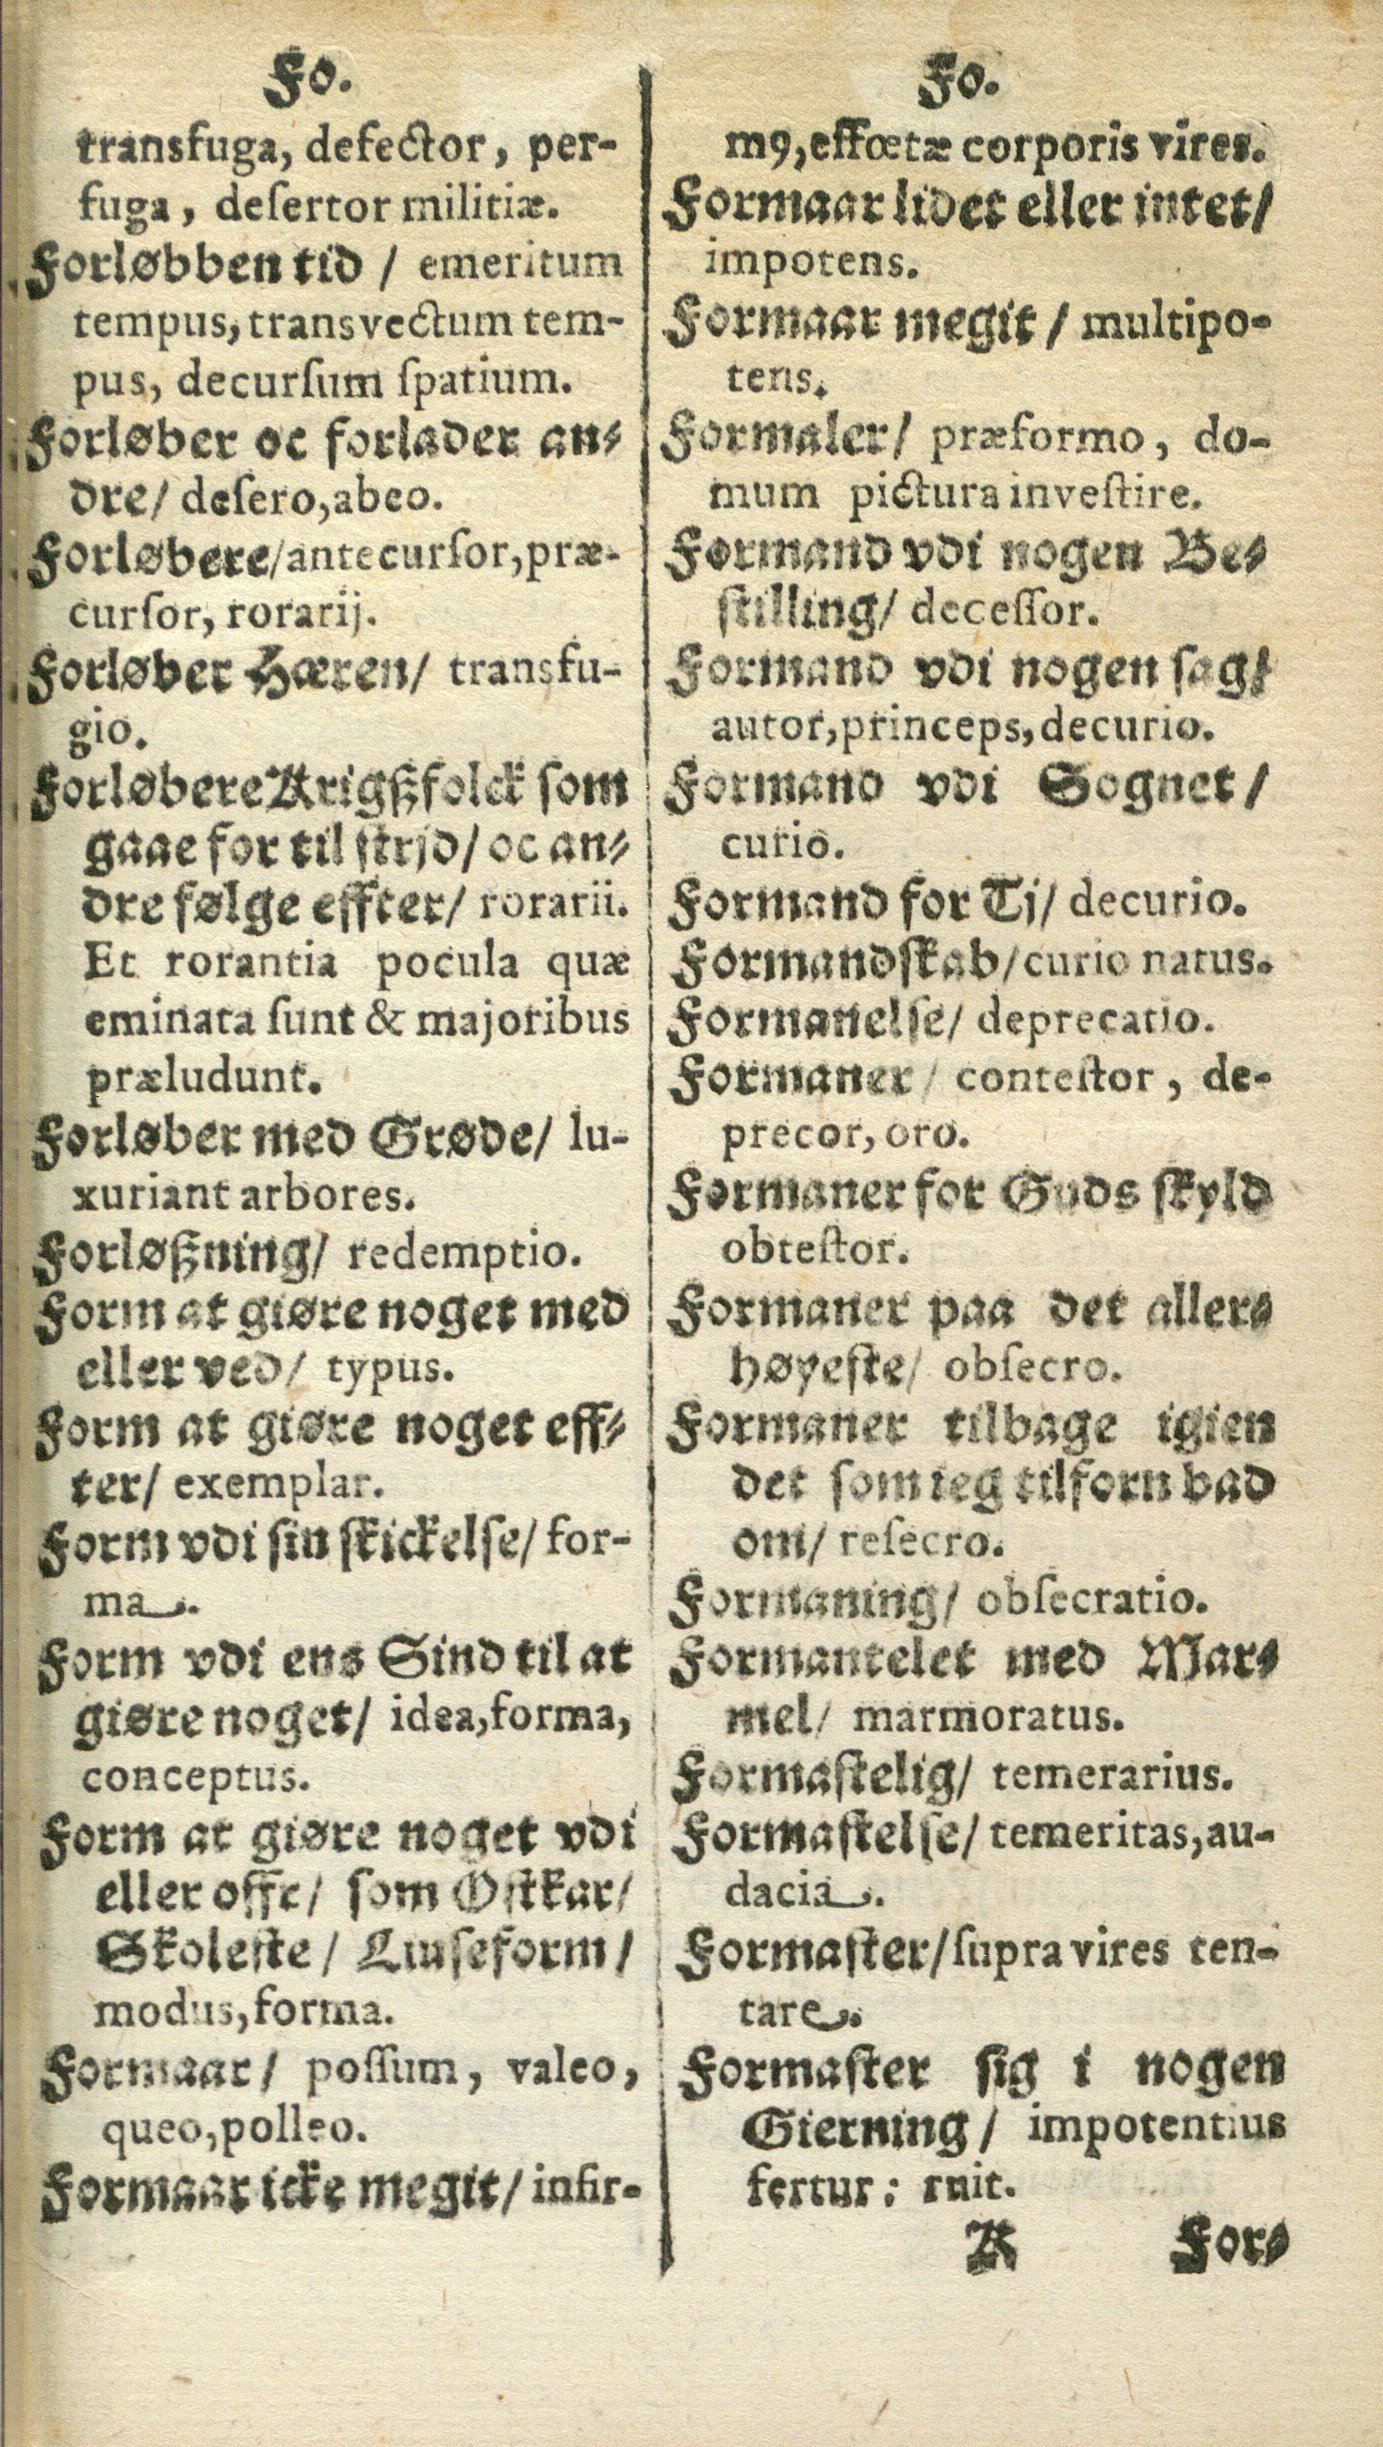 Fo.
transfuga, defector, per-
fuga, deſertor militiæ.
Forløbben tid / emeritum
tempus, transvectum tem-
pus, decurſum ſpatium.
Forløber oc forlader an-
dre/ deſero, abeo.
Forløbere/ antecurſor, præ-
curſor, rorarij.
Forløber Hæren/ transfu-
gio.
Forløbere Krigßfolck ſom
gaae for til ſtrjd/ oc an-
dre følge effter/ rorarii.
Et rorantia pocula quæ
eminata ſunt & majoribus
præludunt.
Forløber med Grøde/ lu-
xuriant arbores.
Forløßning/ redemptio.
Form at giøre noget med
eller ved/ typus.
Form at giøre noget eff-
ter/ exemplar.
Form vdi ſin ſkickelſe/ for-
ma.
Form vdi ens Sind til at
giøre noget/ idea, forma,
conceptus.
Form at giøre noget vdi
eller offr/ ſom Oſtkar/
Skoleſte/ Liuſeform/
modus, forma.
Formaar/ poſſum, valeo,
queo, polleo.
Formaar icke megit/ infir-
Fo.
m9, effœtæ corporis vires.
Formaar lidet eller intet/
impotens.
Formaar megit/ multipo-
tens.
Formaler/ præformo, do-
mum pictura inveſtire.
Formand vdi nogen Be-
ſtilling/ deceſſor.
Formand vdi nogen ſag/
autor, princeps, decurio.
Formand vdi Sognet/
curio.
Formand for Tj/ decurio.
Formandſkab/ curio natus.
Formanelſe/ deprecatio.
Formaner/ conteſtor, de-
precor, oro.
Formaner for Guds ſkyld
obteſtor.
Formaner paa det aller-
høyeſte/ obſecro.
Formaner tilbage igien
det ſom ieg tilforn bad
om/ reſecro.
Formaning/ obſecratio.
Formantelet med Mar-
mel/ marmoratus.
Formaſtelig/ temerarius.
Formaſtelſe/ temeritas, au-
dacia.
Formaſter/ ſupra vires ten-
tare.
Formaſter ſig i nogen
Gierning/ impotentius
fertur: ruit.
K For-